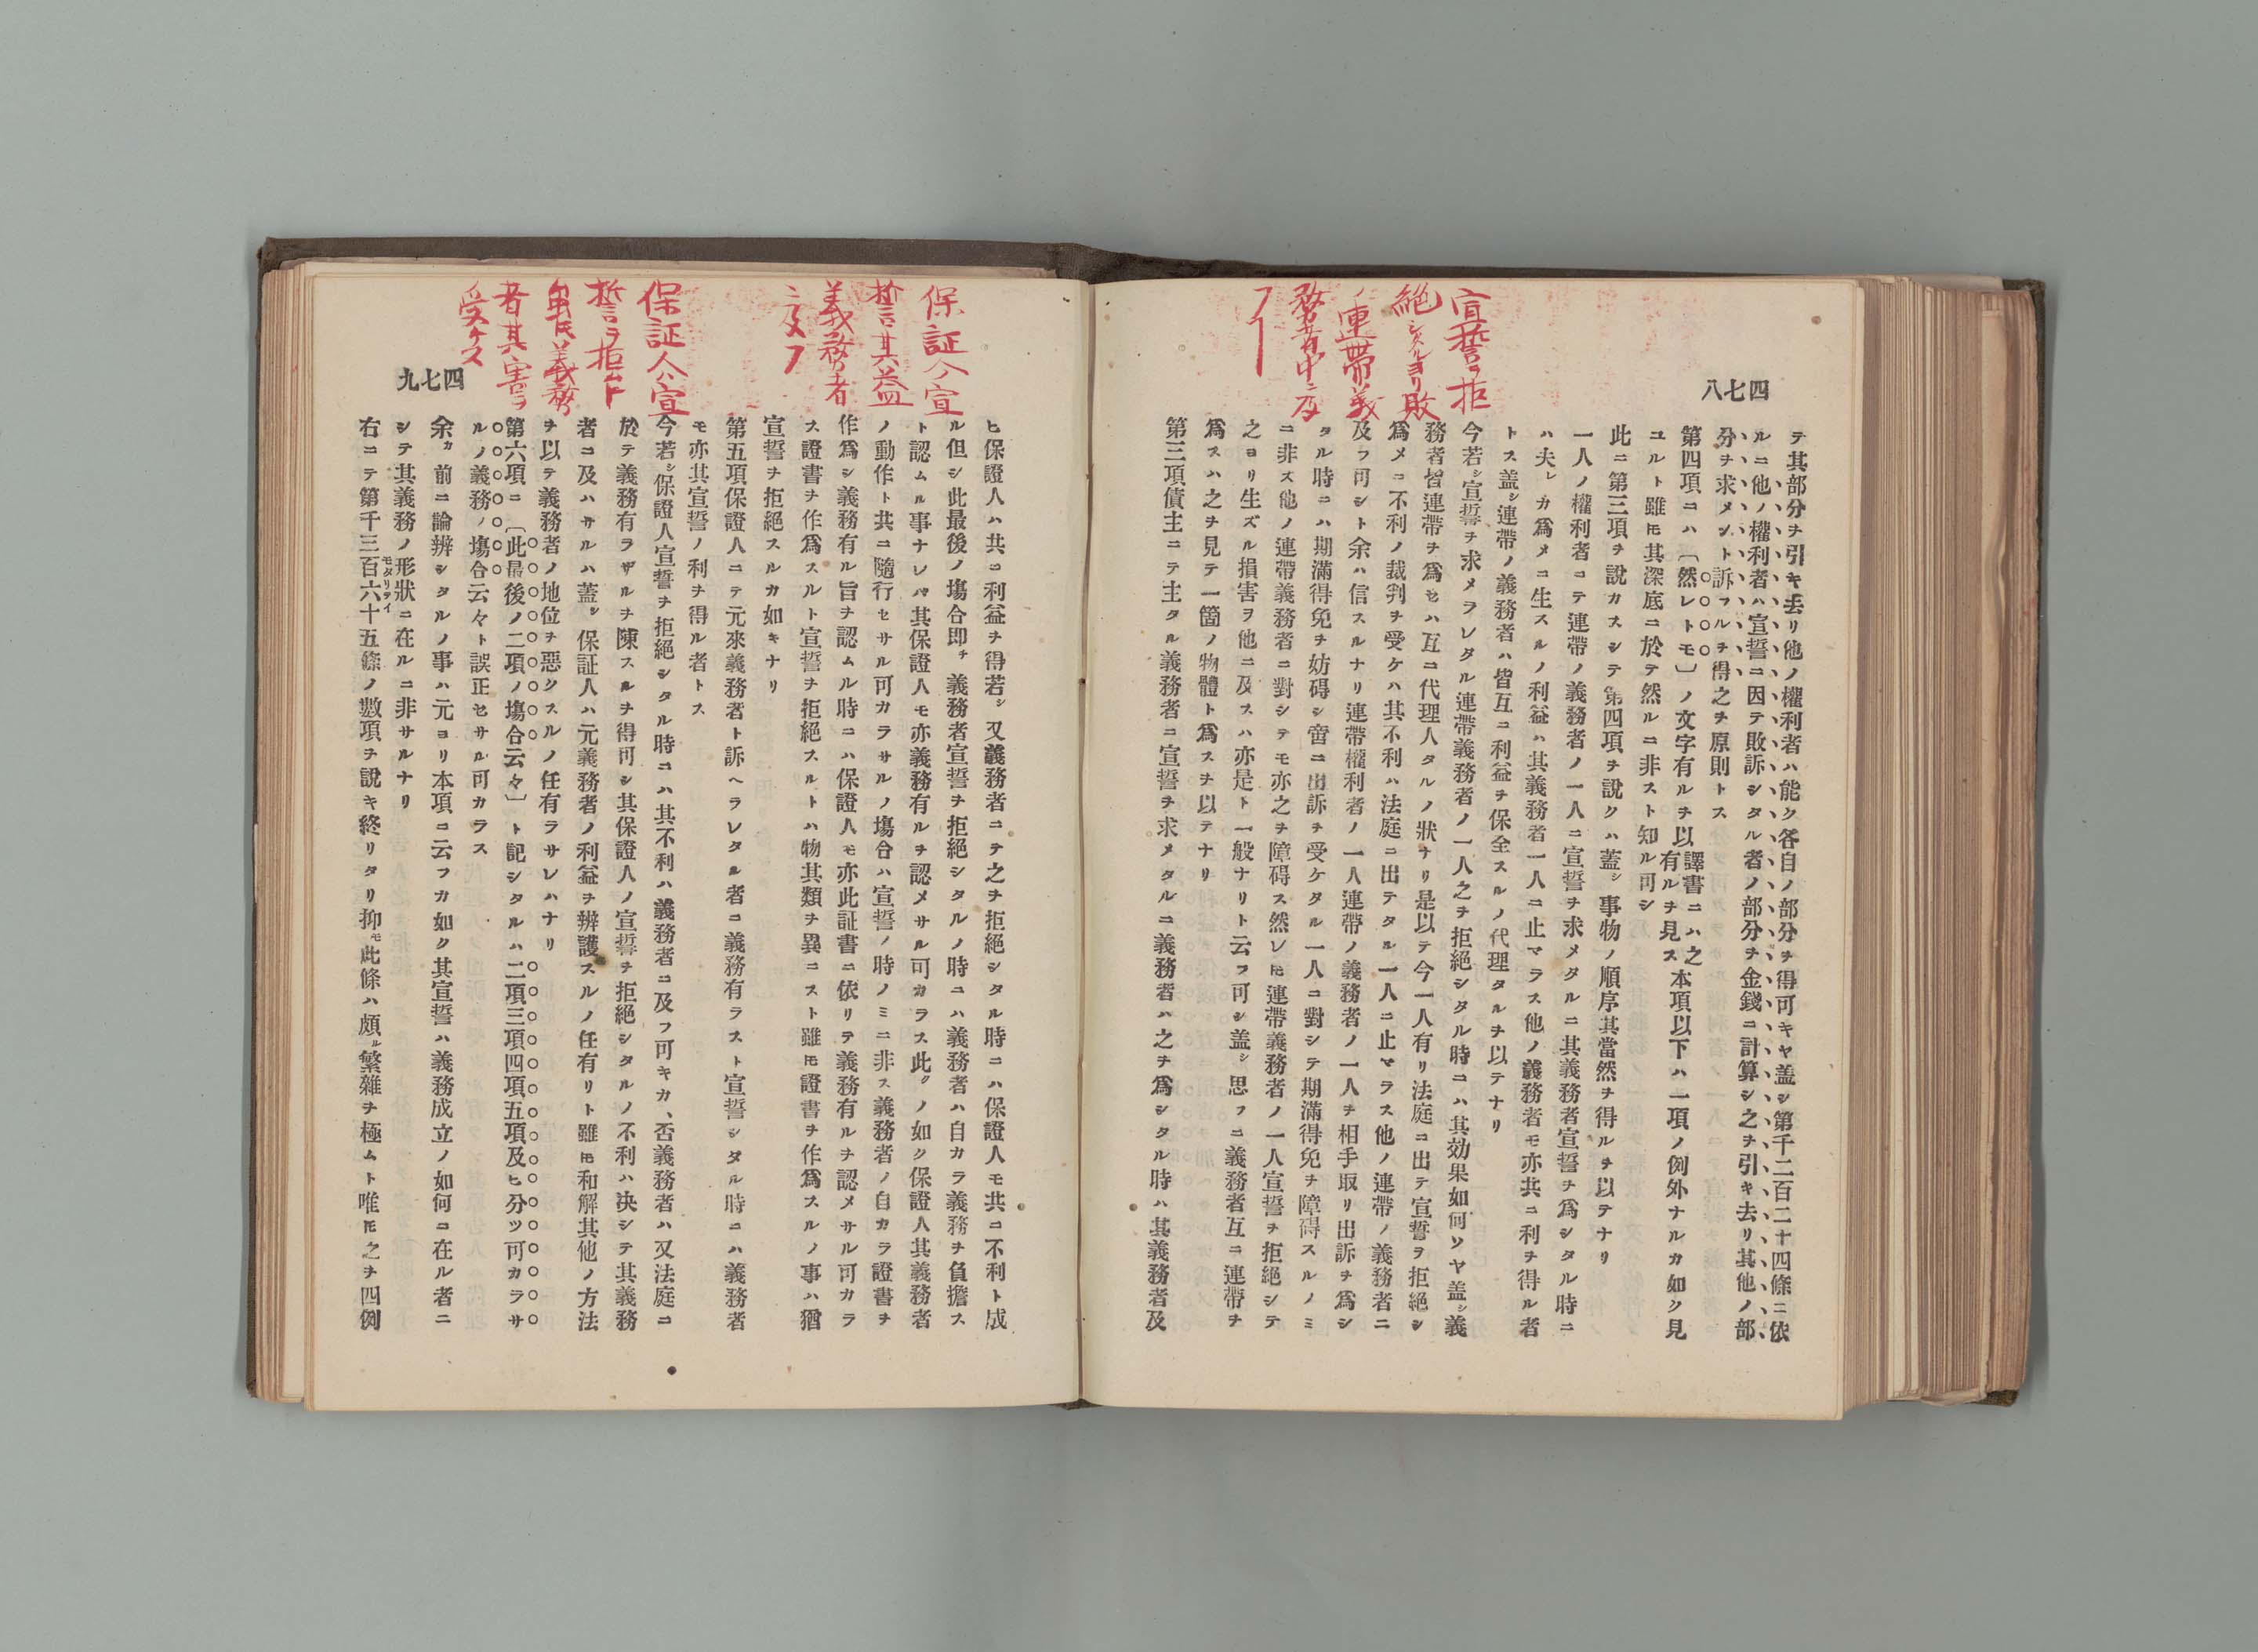 四七八
宣誓ヲ拒
絶シタルヨリ敗
ノ連帶義
務者中ニ及
フ
テ其部分ヲ引キ去リ他ノ權利者ハ能ク各自ノ部分ヲ得可キヤ盖シ第千二百二十四條ニ依
ルニ他ノ權利者ハ宣誓ニ因テ敗訴シタル者ノ部分ヲ金錢ニ計算シ之ヲ引キ去リ其他ノ部
分ヲ求メント訴フルヲ得之ヲ原則トス
第四項ニハ〔然レトモ〕ノ文字有ルヲ以譯書ニハ之有ルヲ見ス本項以下ハ一項ノ例外ナルカ如ク見
ユルト雖モ其深底ニ於テ然ルニ非スト知ル可シ
此ニ第三項ヲ說カスシテ第四項ヲ說クハ蓋シ事物ノ順序其當然ヲ得ルヲ以テナリ
一人ノ權利者ニテ連帶ノ義務者ノ一人ニ宣誓ヲ求メタルニ其義務者宣誓ヲ爲シタル時ニ
ハ夫レカ爲メニ生スルノ利益ハ其義務者一人ニ止マラス他ノ義務者モ亦共ニ利ヲ得ル者
トス盖シ連帶ノ義務者ハ皆互ニ利益ヲ保全スルノ代理タルヲ以テナリ
今若シ宣誓ヲ求メラレタル連帶義務者ノ一人之ヲ拒絕シタル時ニハ其効果如何ソヤ盖シ義
務者皆連帶ヲ爲セハ互ニ代理人タルノ狀ナリ是以テ今一人有リ法庭ニ出テ宣誓ヲ拒絕シ
爲メニ不利ノ裁判ヲ受ケハ其不利ハ法庭ニ出テタル一人ニ止マラス他ノ連帶ノ義務者ニ
及フ可シト余ハ信スルナリ連帶權利者ノ一人連帶ノ義務者ノ一人ヲ相手取リ出訴ヲ爲シ
タル時ニハ期滿得免ヲ妨碍シ啻ニ出訴ヲ受ケタル一人ニ對シテ期滿得免ヲ障碍スルノミ
ニ非ス他ノ連帶義務者ニ對シテモ亦之ヲ障碍ス然レモ連帶義務者ノ一人宣誓ヲ拒絕シテ
之ヨリ生ズル損害ヲ他ニ及スハ亦是ト一般ナリト云フ可シ盖シ思フニ義務者互ニ連帶ヲ
爲スハ之ヲ見テ一箇ノ物體ト爲スヲ以テナリ
第三項債主ニテ主タル義務者ニ宣誓ヲ求メタルニ義務者ハ之ヲ爲シタル時ハ其義務者及
四七九
保証人宣
誓其益
義務者
ニ及フ
保証人宣
誓ヲ拒ムト
義務
者其害ヲ
受ケス
ヒ保證人ハ共ニ利益ヲ得若シ又義務者ニテ之ヲ拒絕シタル時ニハ保證人モ共ニ不利ト成
ル但シ此最後ノ塲合即チ義務者宣誓ヲ拒絕シタルノ時ニハ義務者ハ自カラ義務ヲ負擔ス
ト認ムル事ナレバ其保證人モ亦義務有ルヲ認メサル可カラス此クノ如ク保證人其義務者
ノ動作ト共ニ隨行セサル可カラサルノ塲合ハ宣誓ノ時ノミニ非ス義務者ノ自カラ證書ヲ
作爲シ義務有ル旨ヲ認ムル時ニハ保證人モ亦此証書ニ依リテ義務有ルヲ認メサル可カラ
ス證書ヲ作爲スルト宣誓ヲ拒絕スルトハ物其類ヲ異ニスト雖モ證書ヲ作爲スルノ事ハ猶
宣誓ヲ拒絕スルカ如キナリ
第五項保證人ニテ元來義務者ト訴ヘラレタル者ニ義務有ラスト宣誓シタル時ニハ義務者
モ亦其宣誓ノ利ヲ得ル者トス
今若シ保證人宣誓ヲ拒絕シタル時ニハ其不利ハ義務者ニ及フ可キカ、否義務者ハ又法庭ニ
於テ義務有ラザルヲ陳スルヲ得可シ其保證人ノ宣誓ヲ拒絕シタルノ不利ハ决シテ其義務
者ニ及ハサルハ蓋シ保証人ハ元義務者ノ利益ヲ辨護スルノ任有リト雖モ和解其他ノ方法
ヲ以テ義務者ノ地位ヲ惡クスルノ任有ラサレハナリ
第六項ニ〔此最後ノ二項ノ塲合云々〕ト記シタルハ二項三項四項五項及ヒ分ツ可カラサ
ルノ義務ノ塲合云々ト誤正セサル可カラス
余カ前ニ論辨シタルノ事ハ元ヨリ本項ニ云フカ如ク其宣誓ハ義務成立ノ如何ニ在ル者ニ
シテ其義務ノ形狀モダリテイニ在ルニ非サルナリ
右ニテ第千三百六十五條ノ數項ヲ說キ終リタリ抑モ此條ハ頗ル繁雜ヲ極ムト唯モ之ヲ四例